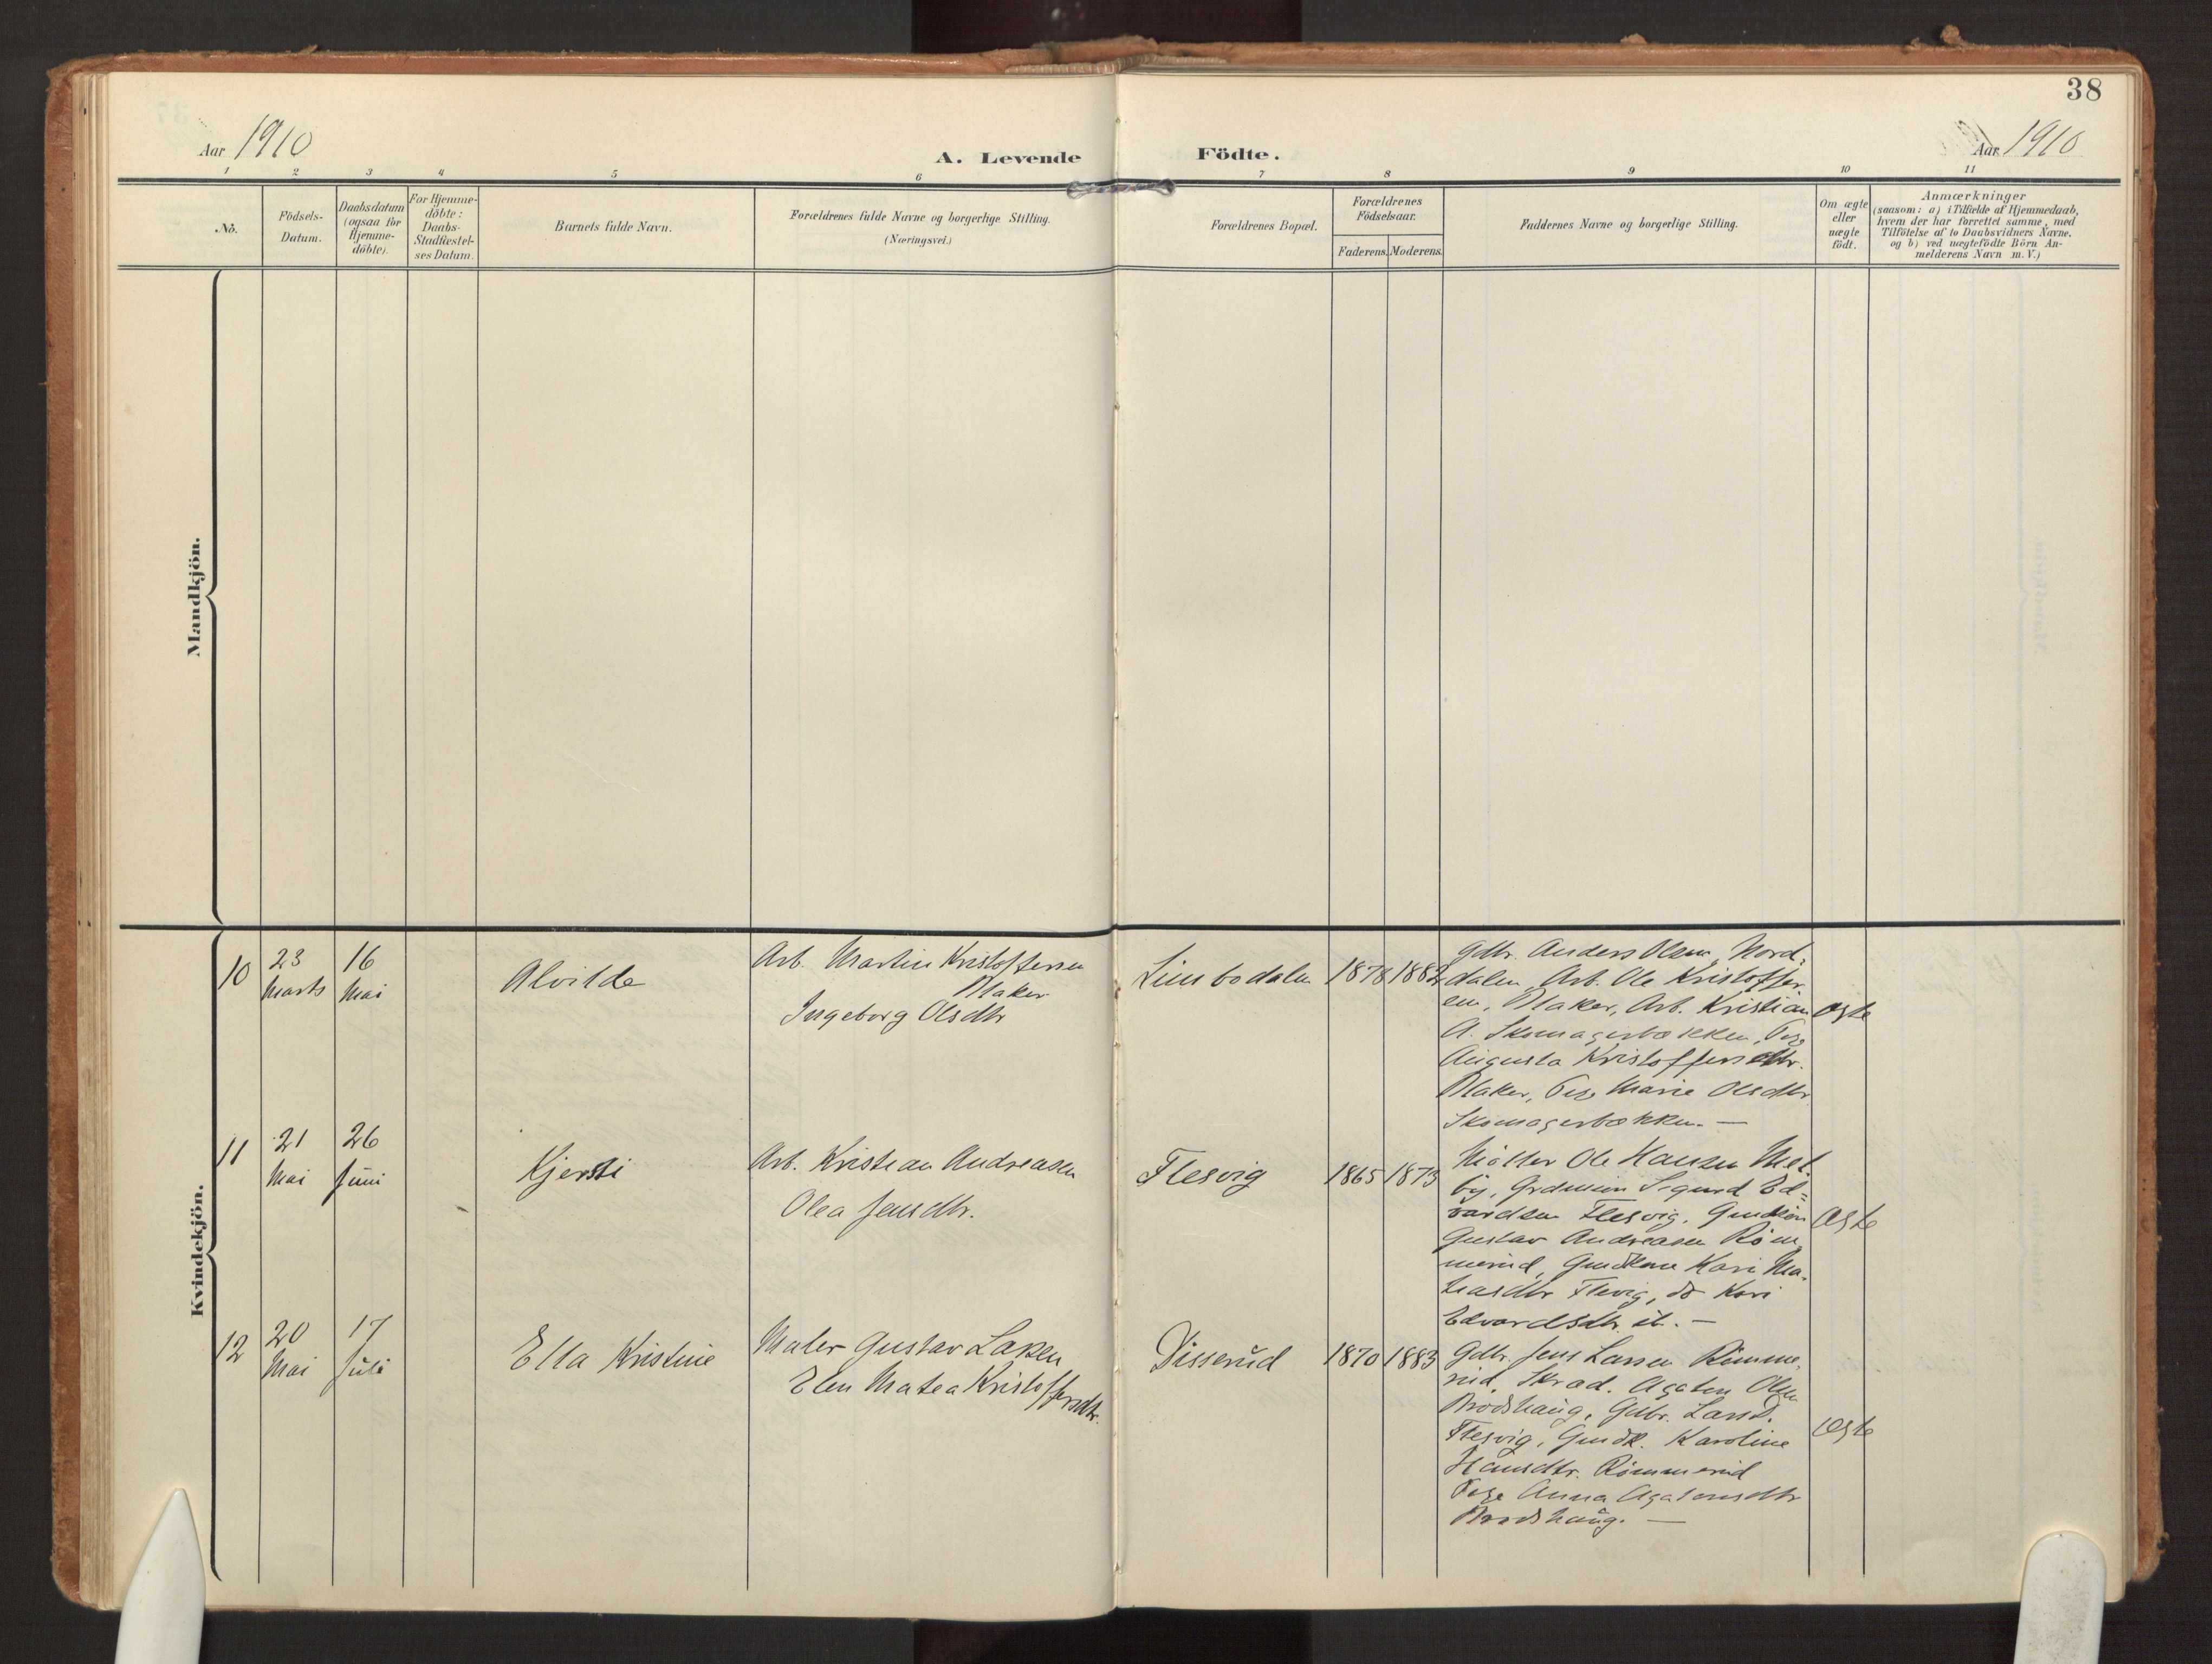 38
Aar 1910
A. Levende Födte.
Aar 1910
1 2 3 4 5 6 7 8 9 10 11
No.
Födsels-
Datum.
Daabsdatum
(ogsaa for
Hjemme-
döbte).
For Hjemme-
döbte:
Daabs-
Stadfæstel-
ses Datum.
Barnets fulde Navn.
Forældrenes fulde Navne og borgerlige Stilling.
(Næringsvei.)
Forældrenes Bopæl.
Forældrenes
Födselsaar.
Faderens.
Moderens.
Faddernes Navne og borgerlige Stilling.
Om ægte
eller
uægte
födt.
Anmærkninger
(saasom: a) i Tilfælde af Hjemmedaab,
hvem der har forrettet samme, med
Tilföielse af to Daabsvidners Navne.
og b) ved uægtefödte Börn An-
melderens Navn m.V.)
Mandkjön.
Kvindekjön.
10
23
Marts
16
Mai
Alvilde
Arb. Martin Kristoffersen
Blaker
Ingeborg Olsdtr
Limbodalen
1878
1882
Gdbr. Anders Olsen Nord-
dalen, Arb. Ole Kristoffer-
en, Blaker, Arb. Kristian
A. Skomagerbækken, Pige
Augusta Kristoffersdtr.
Blaker, Pige Marie Olsdtr
Skomagerbækken. —
Ægte
11
21
Mai
26
Juni
Kjersti
Arb. Kristian Andreasen
Olea Jensdtr.
Flesvig
1865
1873
Møller Ole Hansen Mel-
by, Sigurd Ed-
vardsen Flesvig,
Gustav Andreasen Röm-
merud, Kari Ma-
Flesvig, do Kari
Edvardsdtr. —
Ægte
12
20
Mai
17
Juli
Ella Kristine
Maler Gustav Larsen
Elen Matea Kristoffersdtr.
Disserud
1870
1883
Gdbr. Jens Larsen Römme-
rud, Skræd. Agaton Olsen
Brodshaug, Gdbr. Lars
Flesvig, Karoline
Hansdtr. Römmerud
Pige Anna Agatonsdtr
Brodshaug. —
Ægte